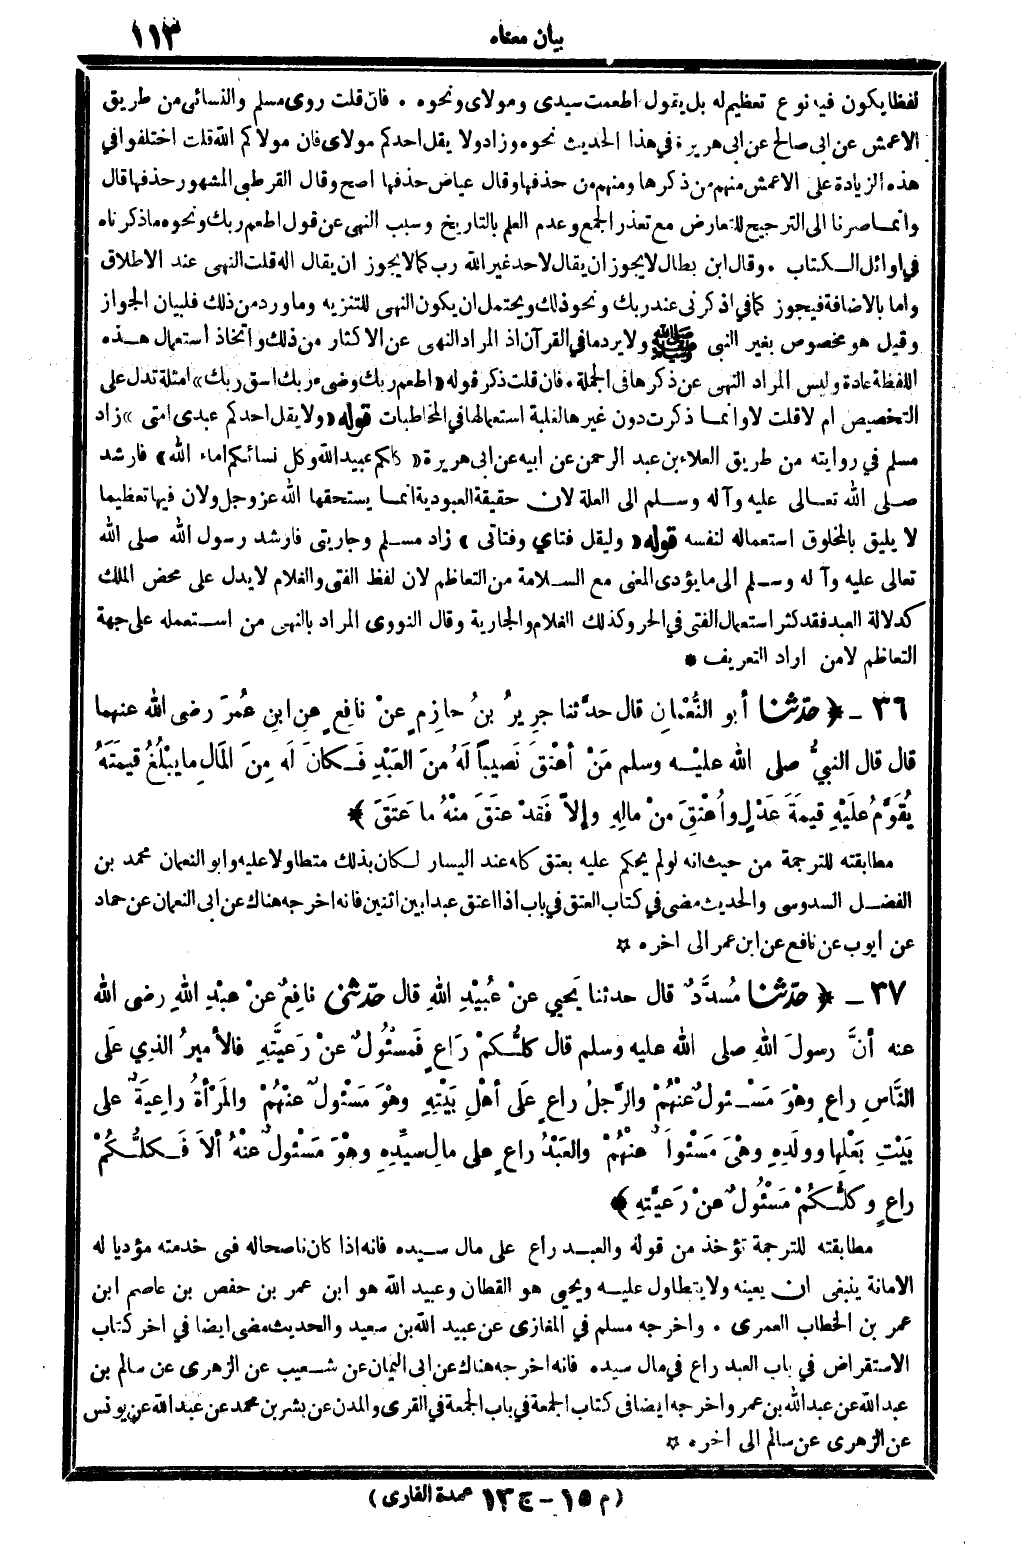 بيان معناه ١١٣
لفظا يكون فيه نوع تعظيم له بل يقول اطعمت سيدى ومولاى ونحوه . فان قلت روى مسلم والنسائى من طريق
الاعمش عن ابى صالح عن ابى هريرة فى هذا الحديث نحوه وزاد ولا يقل احدكم مولاى فان مولاكم الله قلت اختلفوا فى
هذه الزيادة على الاعمش منهم من ذكرها ومنهم من حذفها وقال عياض حذفها اصح وقال القرطبى المشهور حذفها قال
وانما صرنا الى الترجيح للتعارض مع تعذر الجمع وعدم العلم بالتاريخ وسبب النهى عن قول اطعم ربك ونحوه ما ذكرناه
فى اوائل الكتاب . وقال ابن بطال لا يجوز ان يقال لاحد غير الله رب كما لا يجوز ان يقال اله قلت النهى عند الاطلاق
واما بالاضافة فيجوز كما فى اذكرنى عند ربك ونحو ذلك ويحتمل ان يكون النهى للتنزيه وما ورد من ذلك فلبيان الجواز
وقيل هو مخصوص بغير النبى ﷺ ولا يرد ما فى القرآن اذ المراد النهى عن الاكثار من ذلك واتخاذ استعمال هذه
اللفظة عادة وليس المراد النهى عن ذكرها فى الجملة . فان قلت ذكر قوله «اطعم ربك وضىء ربك اسق ربك» امثلة تدل على
التخصيص ام لا قلت لا وانما ذكرت دون غيرها لغلبة استعمالها فى المخاطبات قوله «ولا يقل احدكم عبدى امتى» زاد
مسلم فى روايته من طريق العلاء بن عبد الرحمن عن ابيه عن ابى هريرة «كلكم عبيد الله وكل نسائكم اماء الله» فارشد
صلى الله تعالى عليه وآله وسلم الى العلة لان حقيقة العبودية انما يستحقها الله عز وجل ولان فيها تعظيما
لا يليق بالمخلوق استعماله لنفسه قوله «وليقل فتاي وفتاتى» زاد مسلم وجاريتى فارشد رسول الله صلى الله
تعالى عليه وآله وسلم الى ما يؤدى المعنى مع السلامة من التعاظم لان لفظ الفتى والغلام لا يدل على محض الملك
كدلالة العبد فقد كثر استعمال الفتى فى الحر وكذلك الغلام والجارية وقال النووى المراد بالنهى من استعمله على جهة
التعاظم لا من اراد التعريف *
٣٦ - ﴿حدثنا أبو النُّعْمانِ قال حدَّثنا جريرُ بنُ حازِمٍ عنْ نافِعٍ عنِ ابنِ عُمرَ رضى الله عنهما
قال قال النبيُّ صلى الله عليْه وسلم مَنْ أعْتقَ نَصيباً لَهُ منَ العَبْدِ فَكانَ لَه مِنَ المَالِ ما يبْلُغُ قيمتَهُ
يُقَوَّمُ عَلَيْهِ قيمَةَ عَدْلٍ وأُعْتِقَ منْ مالِهِ وإلاَّ فَقدْ عتَقَ منْهُ ما عَتَقَ﴾
مطابقته للترجمة من حيث انه لو لم يحكم عليه بعتق كله عند اليسار لكان بذلك متطاولا عليه وابو النعمان محمد بن
الفضل السدوسى والحديث مضى فى كتاب العتق فى باب اذا اعتق عبدا بين اثنين فانه اخرجه هناك عن ابى النعمان عن حماد
عن ايوب عن نافع عن ابن عمر الى اخره ☆
٣٧ - ﴿حدثنا مُسدَّدٌ قال حدثنا يَحيي عنْ عُبيْدِ اللهِ قال حدّثنى نافِعٌ عنْ عبْدِ اللهِ رضى الله
عنه أنَّ رسولَ اللهِ صلى الله عليه وسلم قال كلُّكمْ رَاعٍ فَمسئُولٌ عنْ رَعيَّتِهِ فالأميرُ الذي علَى
النَّاسِ راعٍ وهْوَ مَسْئولٌ عنْهُمْ والرَّجلُ راعٍ علَى أهْلِ بَيْتِهِ وهْوَ مَسْئولٌ عنْهُمْ والمَرْأةُ راعِيَةٌ على
بَيْتِ بَعْلِها وولَدِهِ وهْىَ مَسْئولَةٌ عنْهُمْ والعَبْدُ راعٍ على مالِ سيِّدِهِ وهْوَ مَسْئولٌ عنْهُ ألاَ فَكلُّكُمْ
راعٍ وكلُّكُمْ مَسْئُولٌ عنْ رَعيَّتِهِ﴾
مطابقته للترجمة تؤخذ من قوله والعبد راع على مال سيده فانه اذا كان ناصحا له فى خدمته مؤديا له
الامانة ينبغى ان يعينه ولا يتطاول عليه ويحيى هو القطان وعبيد الله هو ابن عمر بن حفص بن عاصم ابن
عمر بن الخطاب العمرى . واخرجه مسلم في المغازى عن عبيد الله بن سعيد والحديث مضى ايضا في اخر كتاب
الاستقراض في باب العبد راع في مال سيده فانه اخرجه هناك عن ابى اليمان عن شعيب عن الزهرى عن سالم بن
عبد الله عن عبد الله بن عمر واخرجه ايضا فى كتاب الجمعة في باب الجمعة في القرى والمدن عن بشر بن محمد عن عبد الله عن يونس
عن الزهرى عن سالم الى اخره ☆
(م ١٥ - ج ١٣ عمدة القارى)